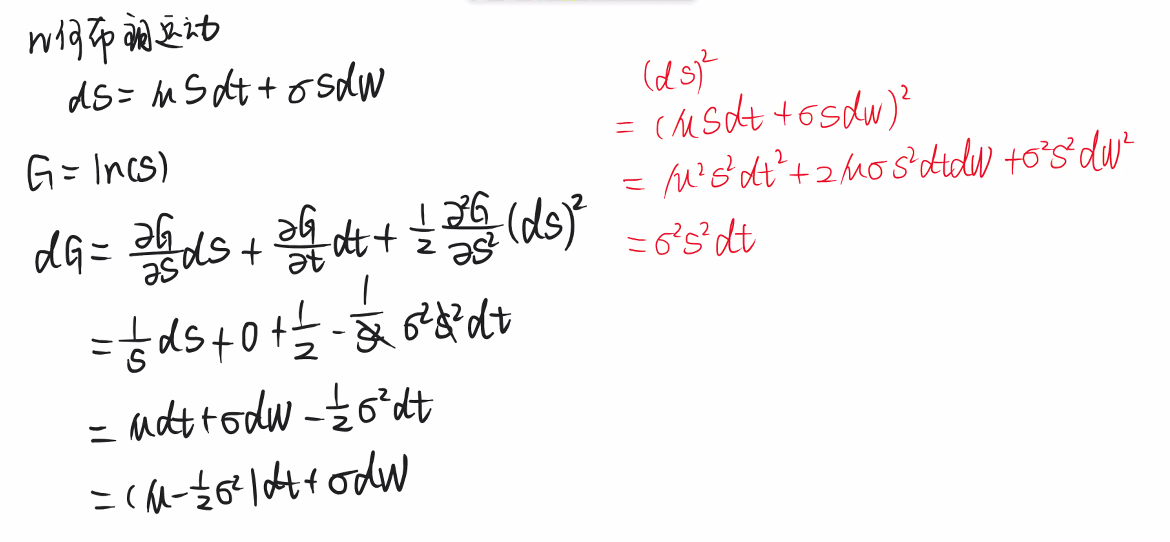 几何布朗运动
dS = μSdt + σSdW
G = ln(S)
dG = ∂G/∂S dS + ∂G/∂t dt + 1/2 ∂²G/∂S² (dS)²
= 1/S dS + 0 + 1/2 - 1/S² σ²S²dt
= μdt + σdW - 1/2 σ²dt
= (μ - 1/2 σ²)dt + σdW
(dS)²
= (μSdt + σSdW)²
= μ²S²dt² + 2μσS²dtdW + σ²S²dW²
= σ²S²dt